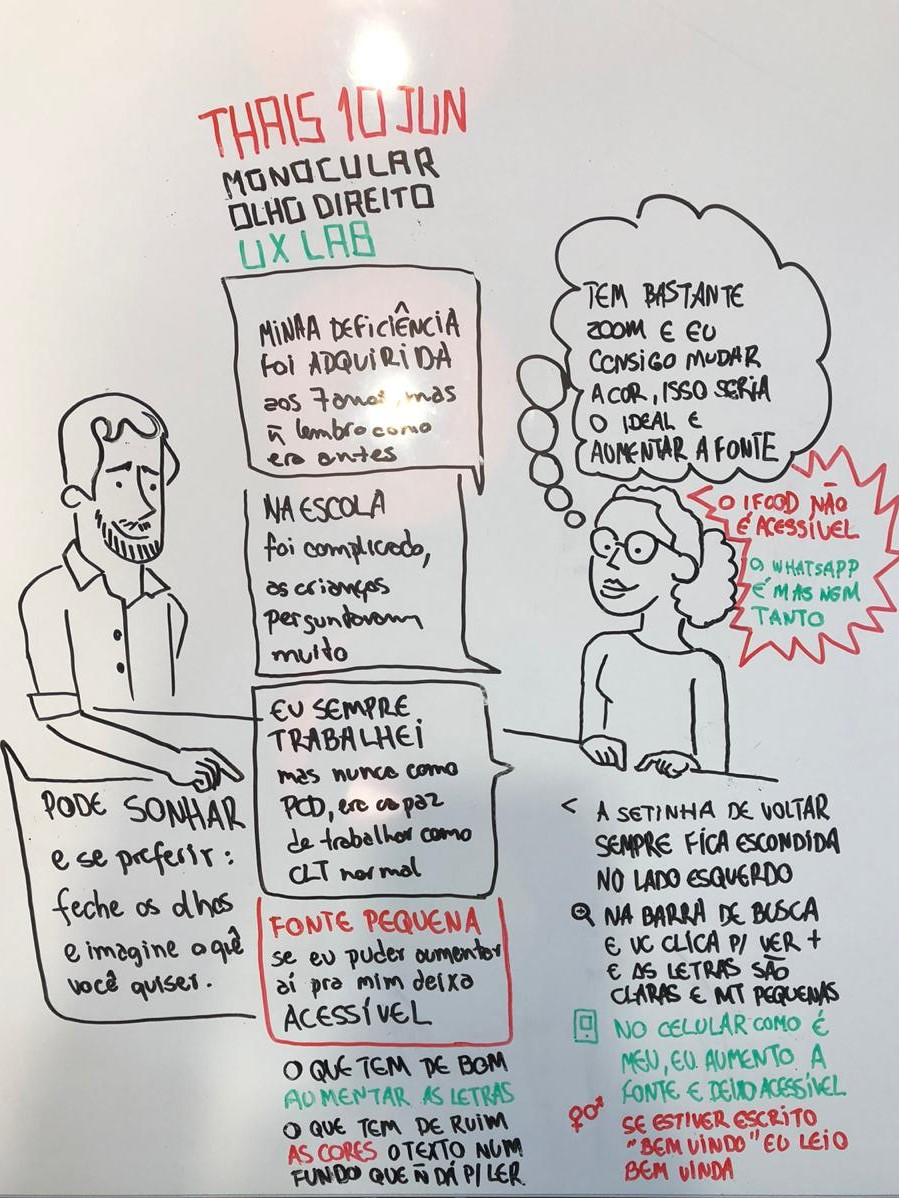 THAIS 10 JUN
MONOCULAR
OLHO DIREITO
UX LAB
MINHA DEFICIÊNCIA
foi ADQUIRIDA
aos 7 anos, mas
ñ lembro como
era antes
NA ESCOLA
foi complicado,
as crianças
perguntavam
muito
EU SEMPRE
TRABALHEI
mas nunca como
PCD, era capaz
de trabalhar como
CLT normal
PODE SONHAR
e se preferir:
feche os olhos
e imagine o quê
você quiser.
FONTE PEQUENA
se eu puder aumentar
aí pra mim deixa
ACESSÍVEL
O QUE TEM DE BOM
AUMENTAR AS LETRAS
O QUE TEM DE RUIM
AS CORES O TEXTO NUM
FUNDO QUE Ñ DÁ P/ LER.
TEM BASTANTE
ZOOM E EU
CONSIGO MUDAR
A COR, ISSO SERIA
O IDEAL E
AUMENTAR A FONTE
O IFOOD NÃO
É ACESSÍVEL
O WHATSAPP
É MAS NEM
TANTO
< A SETINHA DE VOLTAR
SEMPRE FICA ESCONDIDA
NO LADO ESQUERDO
NA BARRA DE BUSCA
E VC CLICA P/ VER +
E AS LETRAS SÃO
CLARAS E MT PEQUENAS
NO CELULAR COMO É
MEU, EU AUMENTO A
FONTE E DEIXO ACESSÍVEL
SE ESTIVER ESCRITO
"BEM VINDO" EU LEIO
BEM VINDA